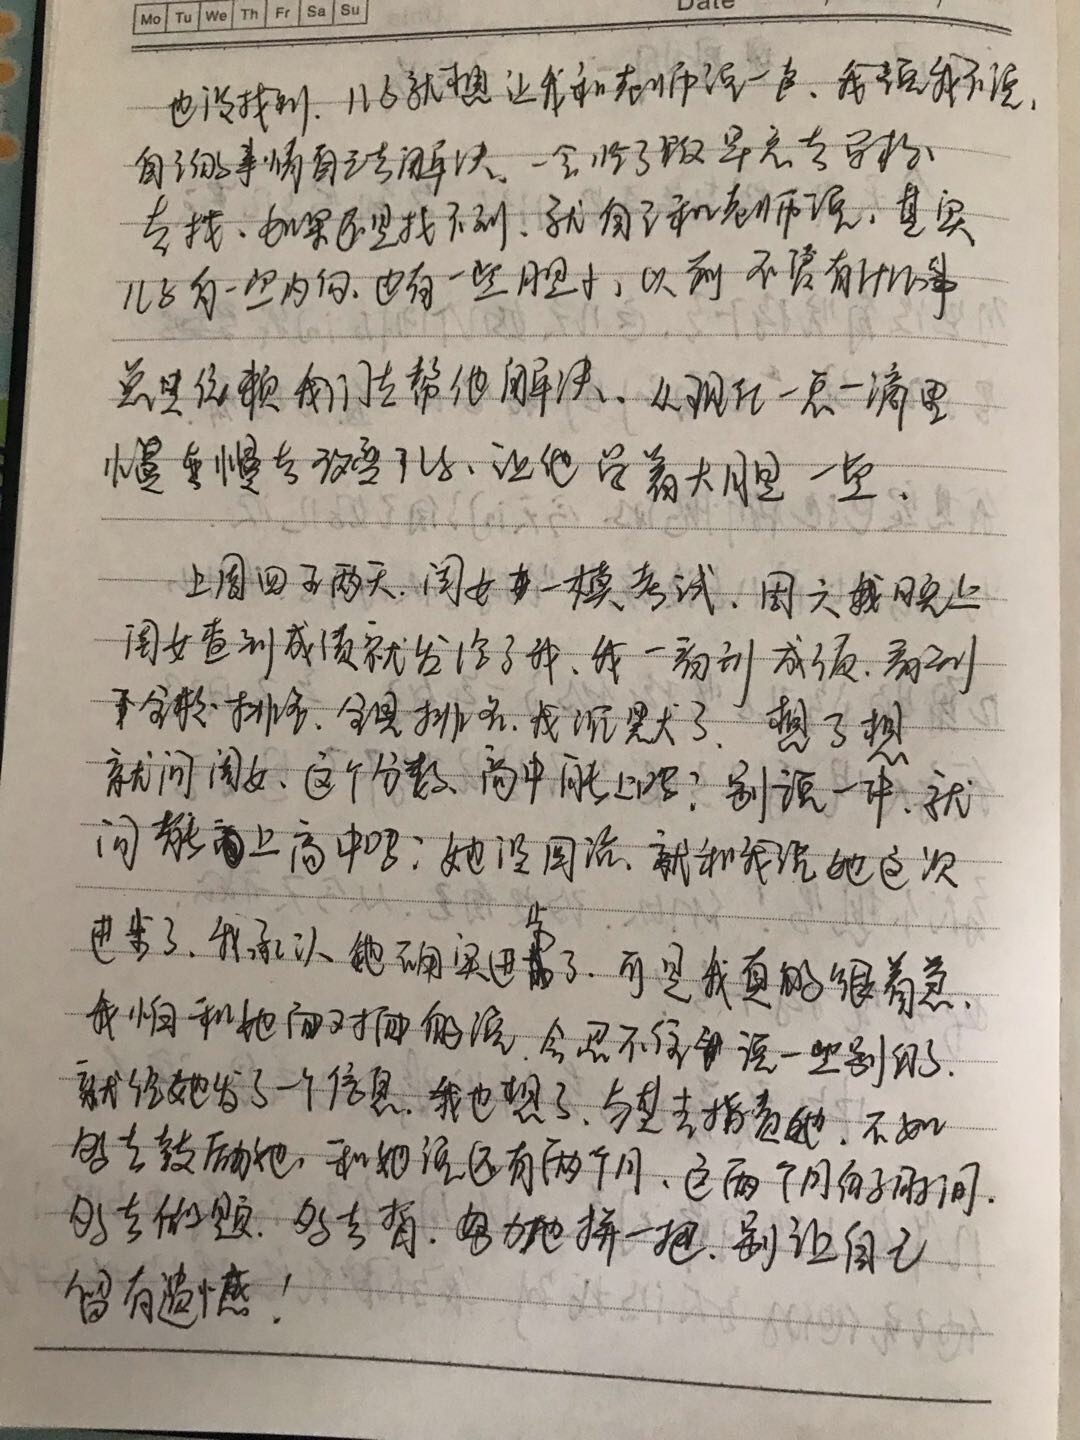 Mo Tu We Th Fr Sa Su
Date
也没找到、儿子就想让我和老师说一声、我说我不说、
自己的事情自己去解决、一会吃了饭早点去学校
去找、如果还是找不到、就自己和老师说、其实
儿子有一些内向、也有一些胆小、以前不管有什么事
总是依赖我们去帮他解决、从现在一点一滴里
慢慢去改变儿子、让他学着大胆一些、
上周四五两天、闺女一模考试、周六晚上
闺女查到成绩就发给了我、我一看到成绩、看到
全校排名、全县排名、我沉默了、想了想
就问闺女、这个分数、高中能上吗？别说一中、就
问能上高中吗？她没回话、就和我说她这次
进步了、我承认她确实进步了、可是我真的很着急、
我怕和她面对面的说、会忍不住说一些别的、
就给她发了一个信息、我也想了、与其去指责她、不如
多去鼓励她、和她说还有两个月、这两个月的时间、
多去做题、多去背、努力地拼一把、别让自己
留有遗憾！